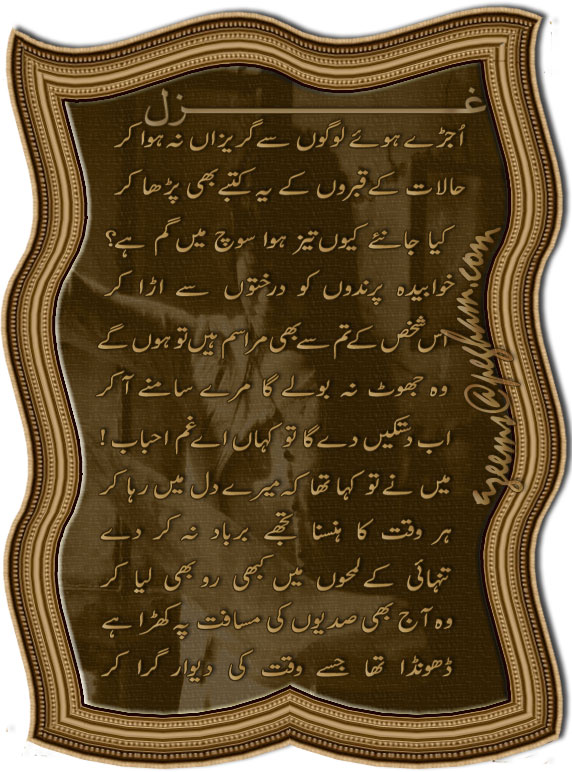 غزل
اُجڑے ہوئے لوگوں سے گریزاں نہ ہوا کر
حالات کے قبروں کے یہ کتبے بھی پڑھا کر
کیا جانئے کیوں تیز ہوا سوچ میں گم ہے؟
خوابیدہ پرندوں کو درختوں سے اڑا کر
اس شخص کے تم سے بھی مراسم ہیں تو ہوں گے
وہ جھوٹ نہ بولے گا مرے سامنے آ کر
اب دستکیں دے گا تو کہاں اے غم احباب!
میں نے تو کہا تھا کہ میرے دل میں رہا کر
ہر وقت کا ہنسنا تجھے برباد نہ کر دے
تنہائی کے لمحوں میں کبھی رو بھی لیا کر
وہ آج بھی صدیوں کی مسافت پہ کھڑا ہے
ڈھونڈا تھا جسے وقت کی دیوار گرا کر